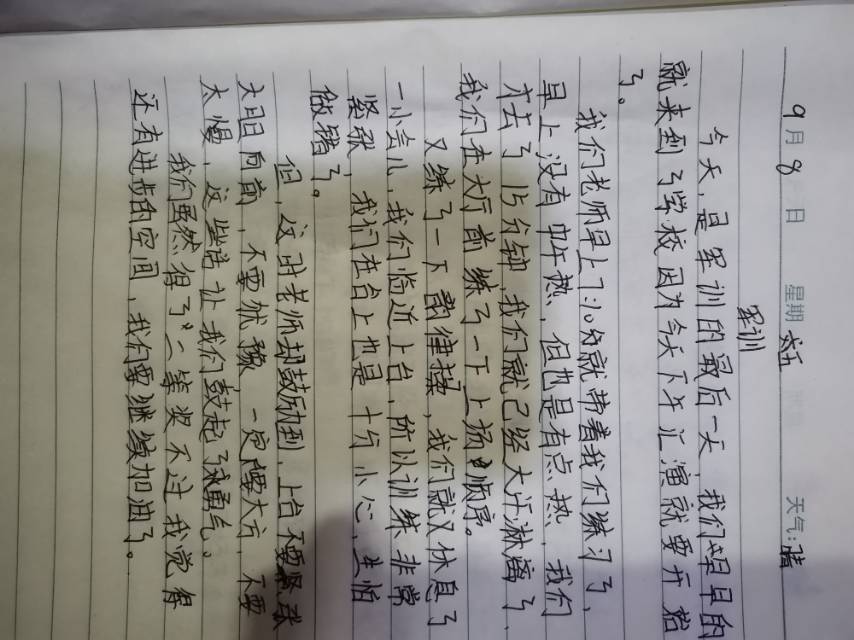 9月8日 星期五 天气:晴
军训
今天,是军训的最后一天,我们早早的
就来到了学校因为今天下午汇演就要开始
了。
我们老师早上7:10分就带着我们练习了,
早上没有中午热,但也是有点热,我们
才去了15分钟,我们就已经大汗淋漓了,
我们在大厅前练了一下上场顺序。
又练了一下韵律操,我们就又休息了
一小会儿,我们临近上台,所以训练非常
紧张,我们在台上也是十分小心,生怕
做错了。
但,这时老师却鼓励到,上台不要紧张
大胆向前,不要犹豫,一定要大方,不要
太慢,这些话让我们鼓起了勇气。
我们虽然得了“二等奖不过我觉得
还有进步的空间,我们要继续加油了。